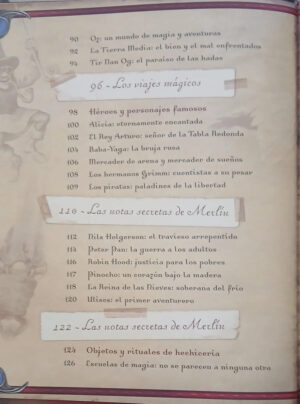 90 Oz: un mundo de magia y aventuras
92 La Tierra Media: el bien y el mal enfrentados
94 Tir Nan Og: el paraíso de las hadas
96 - Los viajes mágicos
98 Héroes y personajes famosos
100 Alicia: eternamente encantada
102 El Rey Arturo: señor de la Tabla Redonda
104 Baba-Yaga: la bruja rusa
106 Mercader de arena y mercader de sueños
108 Los hermanos Grimm: cuentistas a su pesar
109 Los piratas: paladines de la libertad
110 - Las notas secretas de Merlín
112 Nils Holgerson: el travieso arrepentido
114 Peter Pan: la guerra a los adultos
116 Robin Hood: justicia para los pobres
117 Pinocho: un corazón bajo la madera
118 La Reina de las Nieves: soberana del frío
120 Ulises: el primer aventurero
122 - Las notas secretas de Merlín
124 Objetos y rituales de hechicería
126 Escuelas de magia: no se parecen a ninguna otra